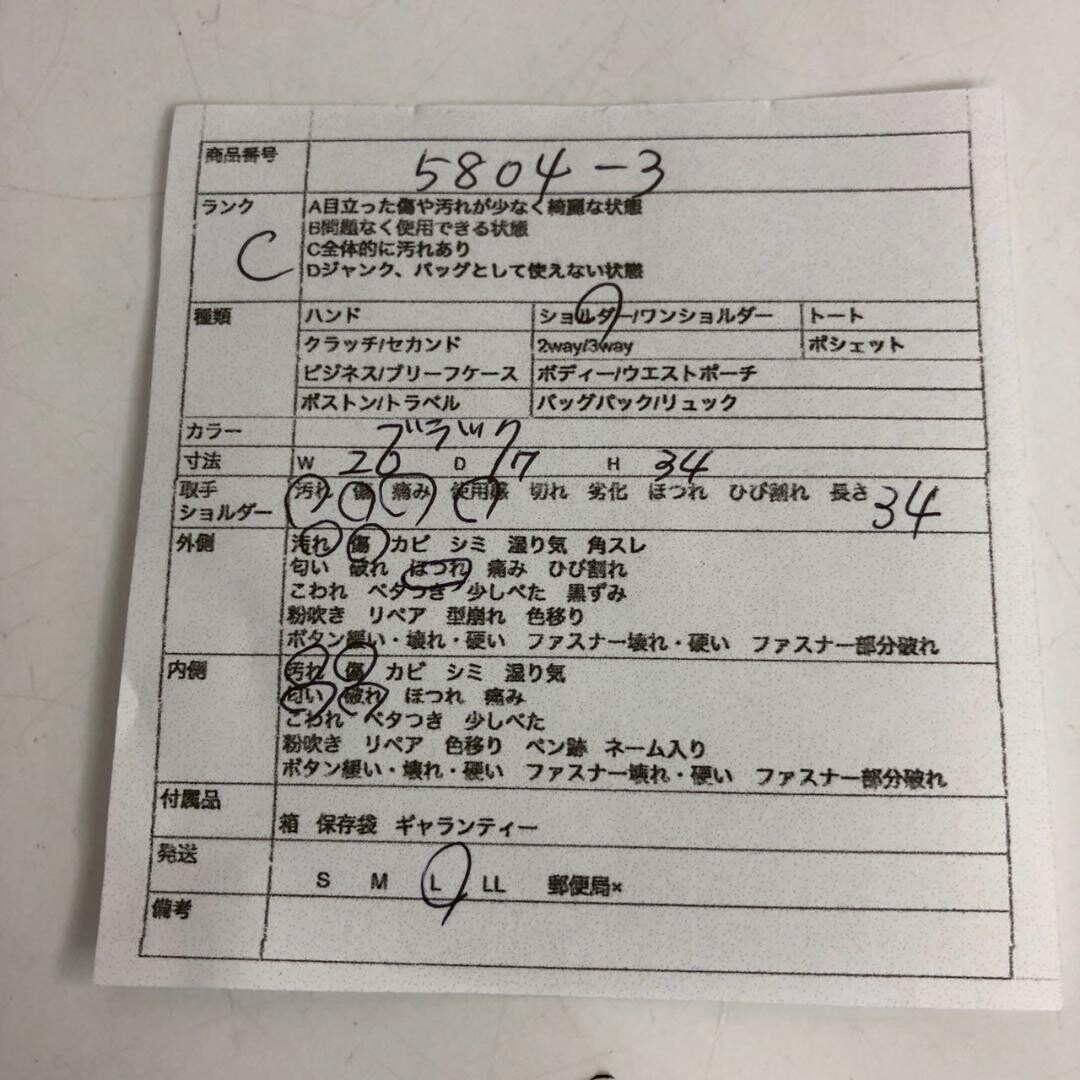 商品番号 5804-3
ランク C
A目立った傷や汚れが少なく綺麗な状態
B問題なく使用できる状態
C全体的に汚れあり
Dジャンク、バッグとして使えない状態
種類 ハンド ショルダー/ワンショルダー トート
クラッチ/セカンド 2way/3way ポシェット
ビジネス/ブリーフケース ボディー/ウエストポーチ
ボストン/トラベル バッグパック/リュック
カラー ブラック
寸法 W 20 D 17 H 34
取手 汚れ 傷 痛み 使用感 切れ 劣化 ほつれ ひび割れ 長さ 34
ショルダー
外側 汚れ 傷 カビ シミ 湿り気 角スレ
匂い 破れ ほつれ 痛み ひび割れ
こわれ ベタつき 少しべた 黒ずみ
粉吹き リペア 型崩れ 色移り
ボタン緩い・壊れ・硬い ファスナー壊れ・硬い ファスナー部分破れ
内側 汚れ 傷 カビ シミ 湿り気
匂い 破れ ほつれ 痛み
こわれ ベタつき 少しべた
粉吹き リペア 色移り ペン跡 ネーム入り
ボタン緩い・壊れ・硬い ファスナー壊れ・硬い ファスナー部分破れ
付属品 箱 保存袋 ギャランティー
発送 S M L LL 郵便局×
備考